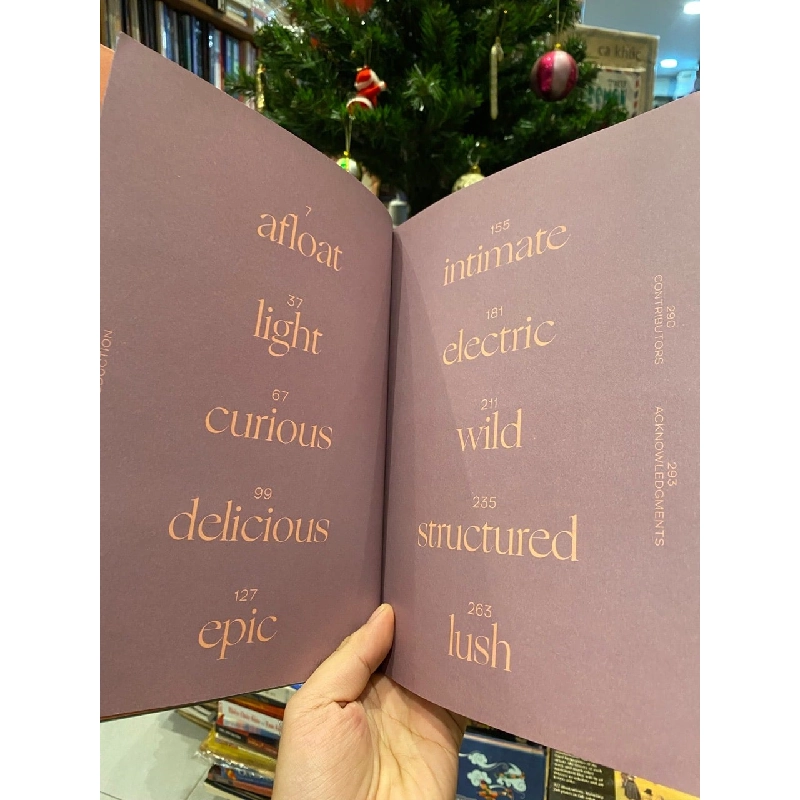 7
afloat
37
light
67
curious
99
delicious
127
epic
155
intimate
181
electric
211
wild
235
structured
263
lush
290
CONTRIBUTORS
293
ACKNOWLEDGMENTS
ca khúc